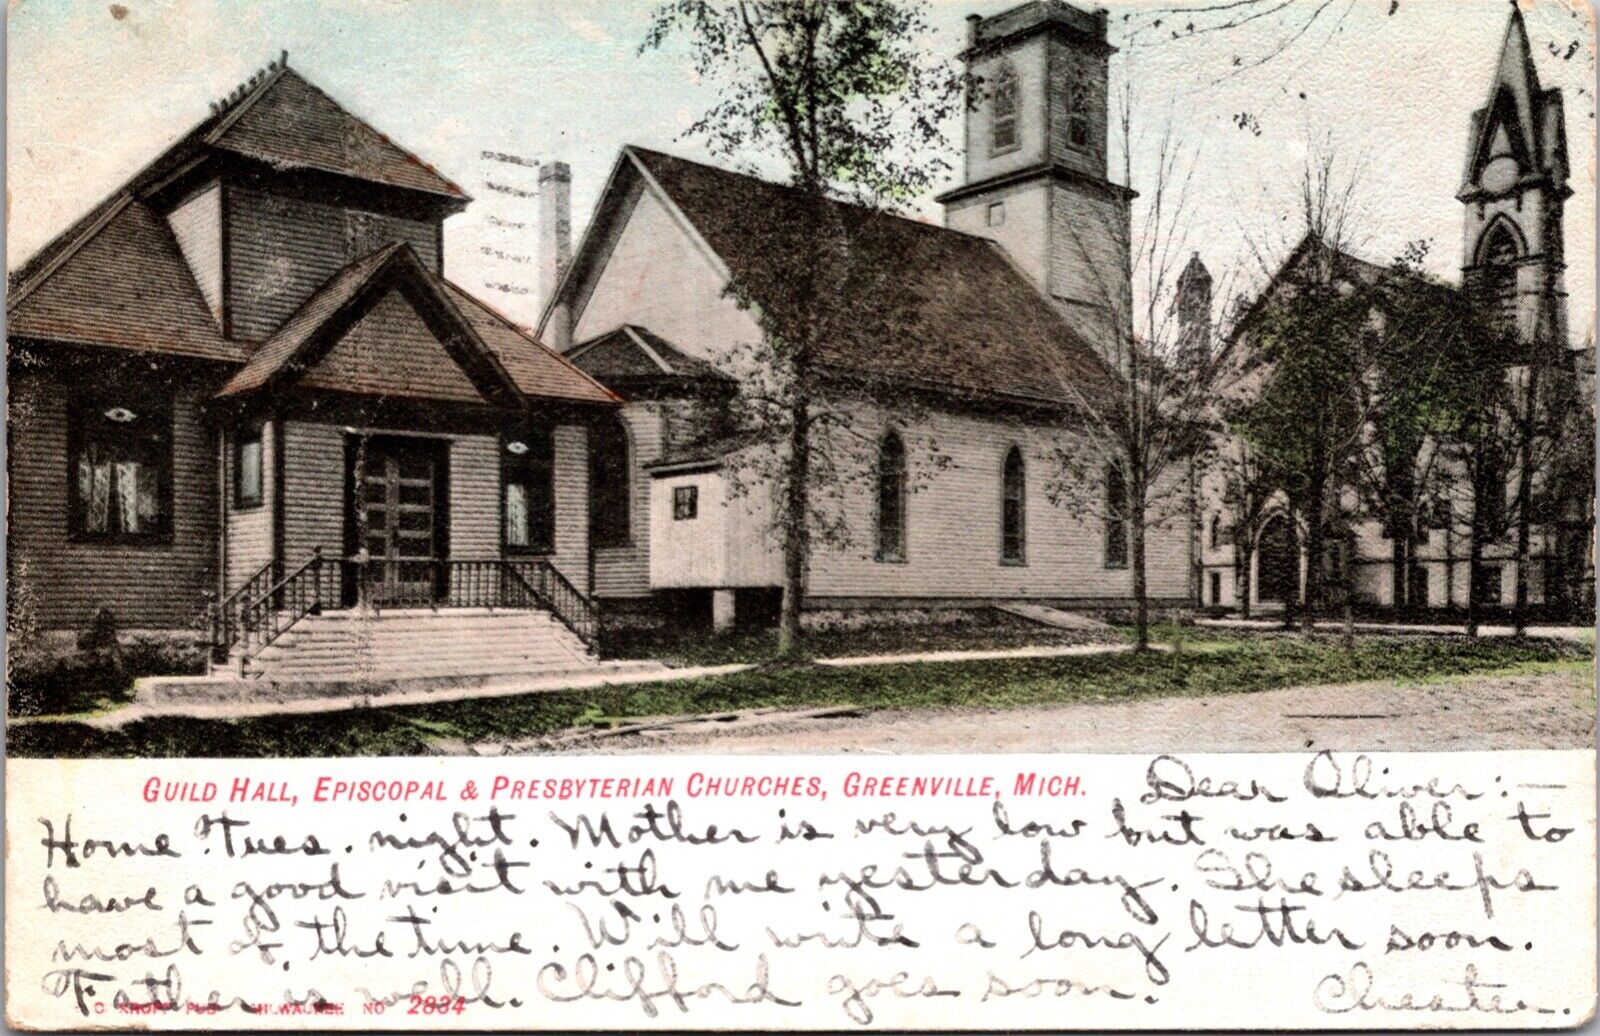 GUILD HALL, EPISCOPAL & PRESBYTERIAN CHURCHES, GREENVILLE, MICH.
Dear Oliver:—
Home Tues. night. Mother is very low but was able to
have a good visit with me yesterday. She sleeps
most of the time. Will write a long letter soon.
Father is well. Clifford goes soon. Chester.
KROPP PUB MILWAUKEE NO 2834